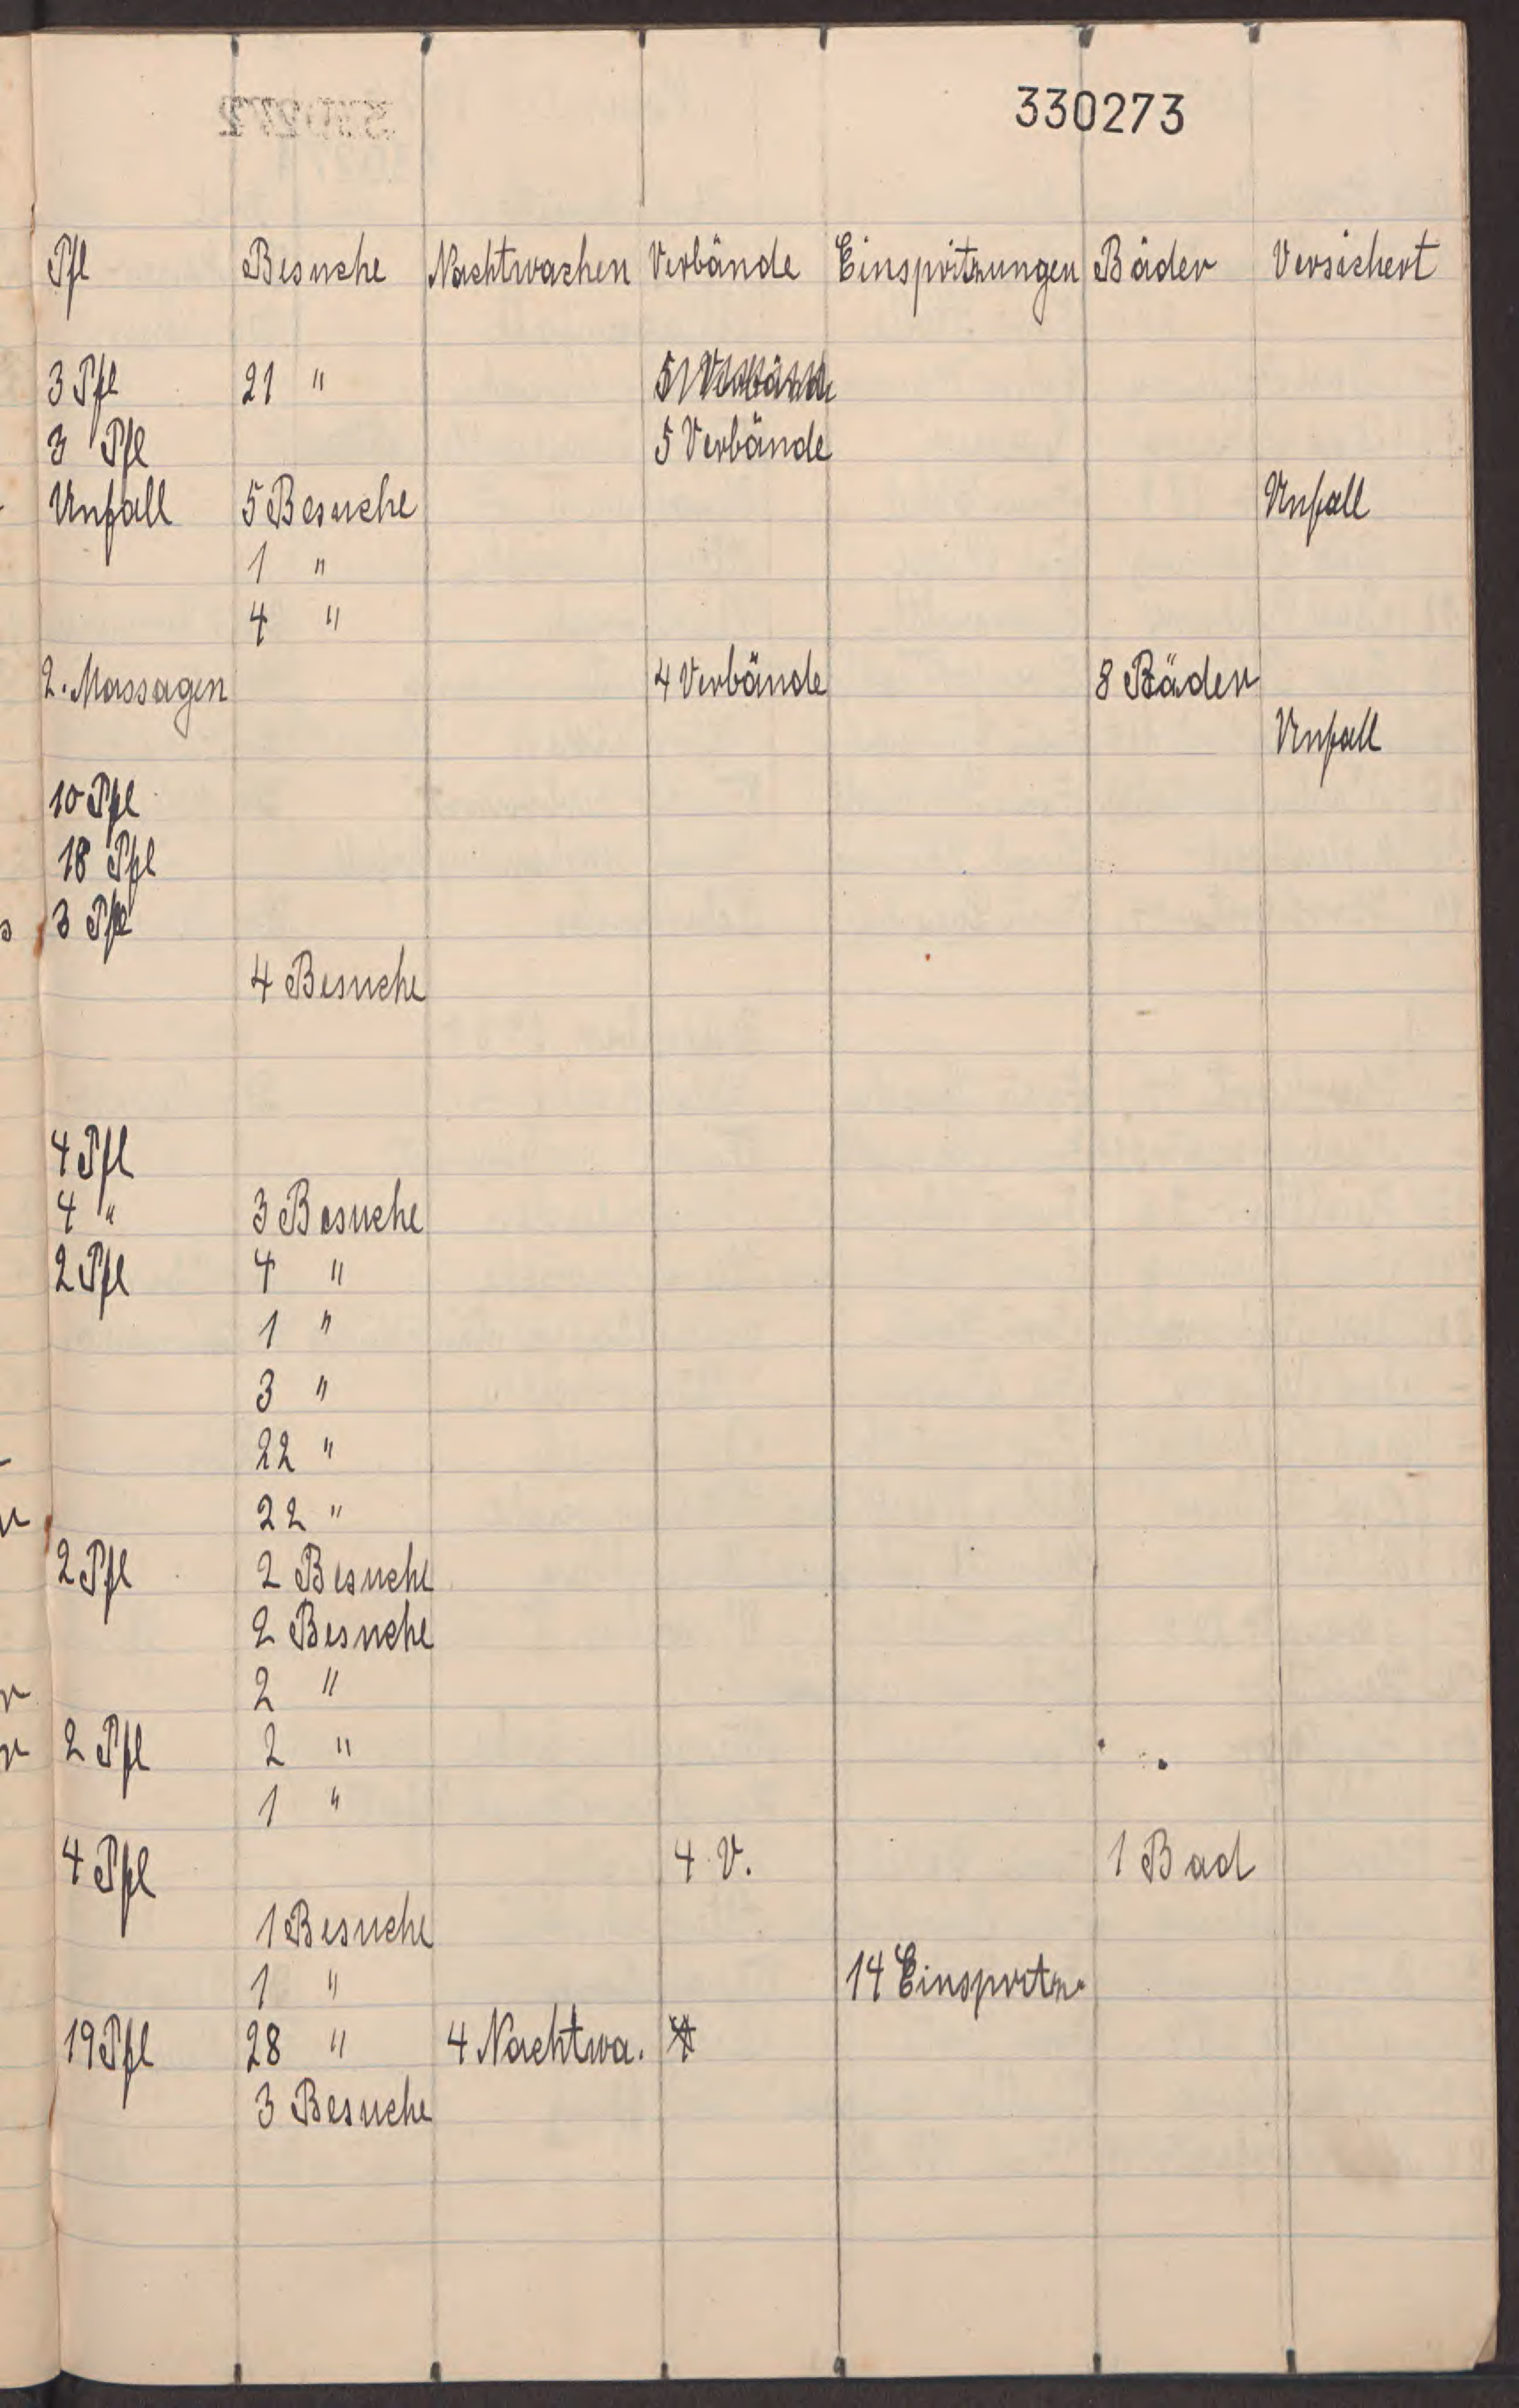 330273
Pfl Besuche Nachtwachen Verbände Einspritzungen Bäder Versichert
3 Pfl 21 " 5 Verbände
3 Pfl 5 Verbände
Unfall 5 Besuche Unfall
1 "
4 "
2. Massagen 4 Verbände 8 Bäder
Unfall
10 Pfl
18 Pfl
3 Pfl
4 Besuche
4 Pfl
4 " 3 Besuche
2 Pfl 4 "
1 "
3 "
22 "
22 "
2 Pfl 2 Besuche
2 Besuche
2 "
2 Pfl 2 "
1 "
4 Pfl 4 V. 1 Bad
1 Besuche
1 " 14 Einspritz.
19 Pfl 28 " 4 Nachtwa.
3 Besuche